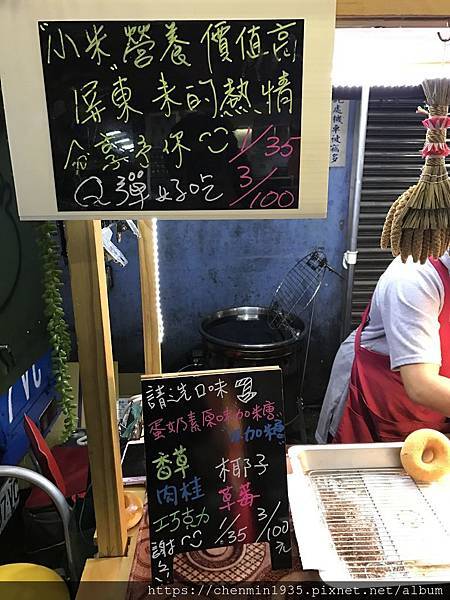 "小米"營養價值高
屏東來的熱情
分享予你 1/35
Q彈好吃 3/100
請洗口味
蛋奶素原味加糖
不加糖
香草 椰子
肉桂 草莓
巧克力 1/35 3/100元
謝
https://chenmin1935.pixnet.net/album